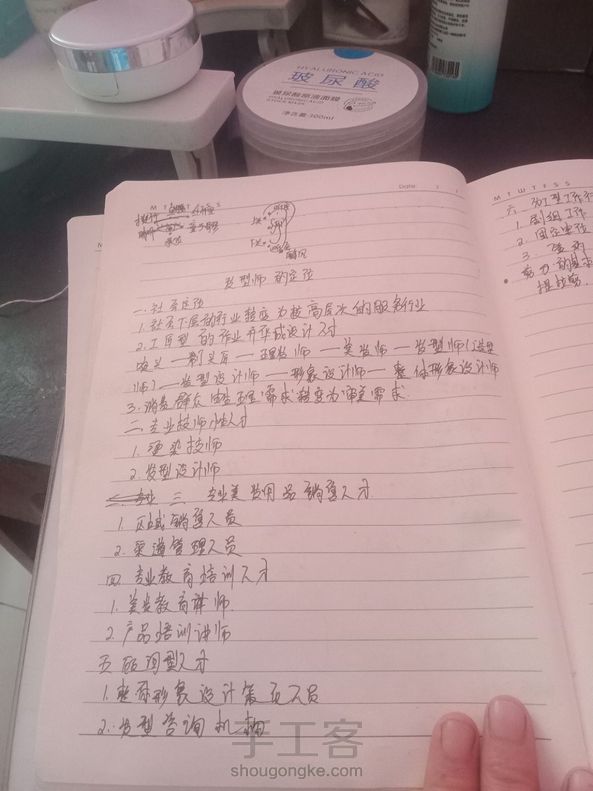 HYALURONIC ACID
玻尿酸
玻尿酸原液面膜
HYALURONIC ACID
STOCK MASK
净含量:300ml
M T W T F S S
Date
发型师的定位
一.社会定位
1.社会下层的行业转变为较高层次的服务行业
2.工匠型的作业升华成设计
定义—剃头匠—理发师—美发师—发型师(造型
师)—发型设计师—形象设计师—整体形象设计师
3.消费群众由生理需求转变为审美需求.
二.专业技师性人才
1.烫染技师
2.发型设计师
三.专业美发用品销售人才
1.区域销售人员
2.渠道管理人员
四.专业教育培训人才
1.美发教育讲师
2.产品培训讲师
五.咨询型人才
1.整体形象设计策划人员
2.发型咨询机构
M T W T F S S
六.
1.剧组工作
2.固定单位
3.
手工客
shougongke.com